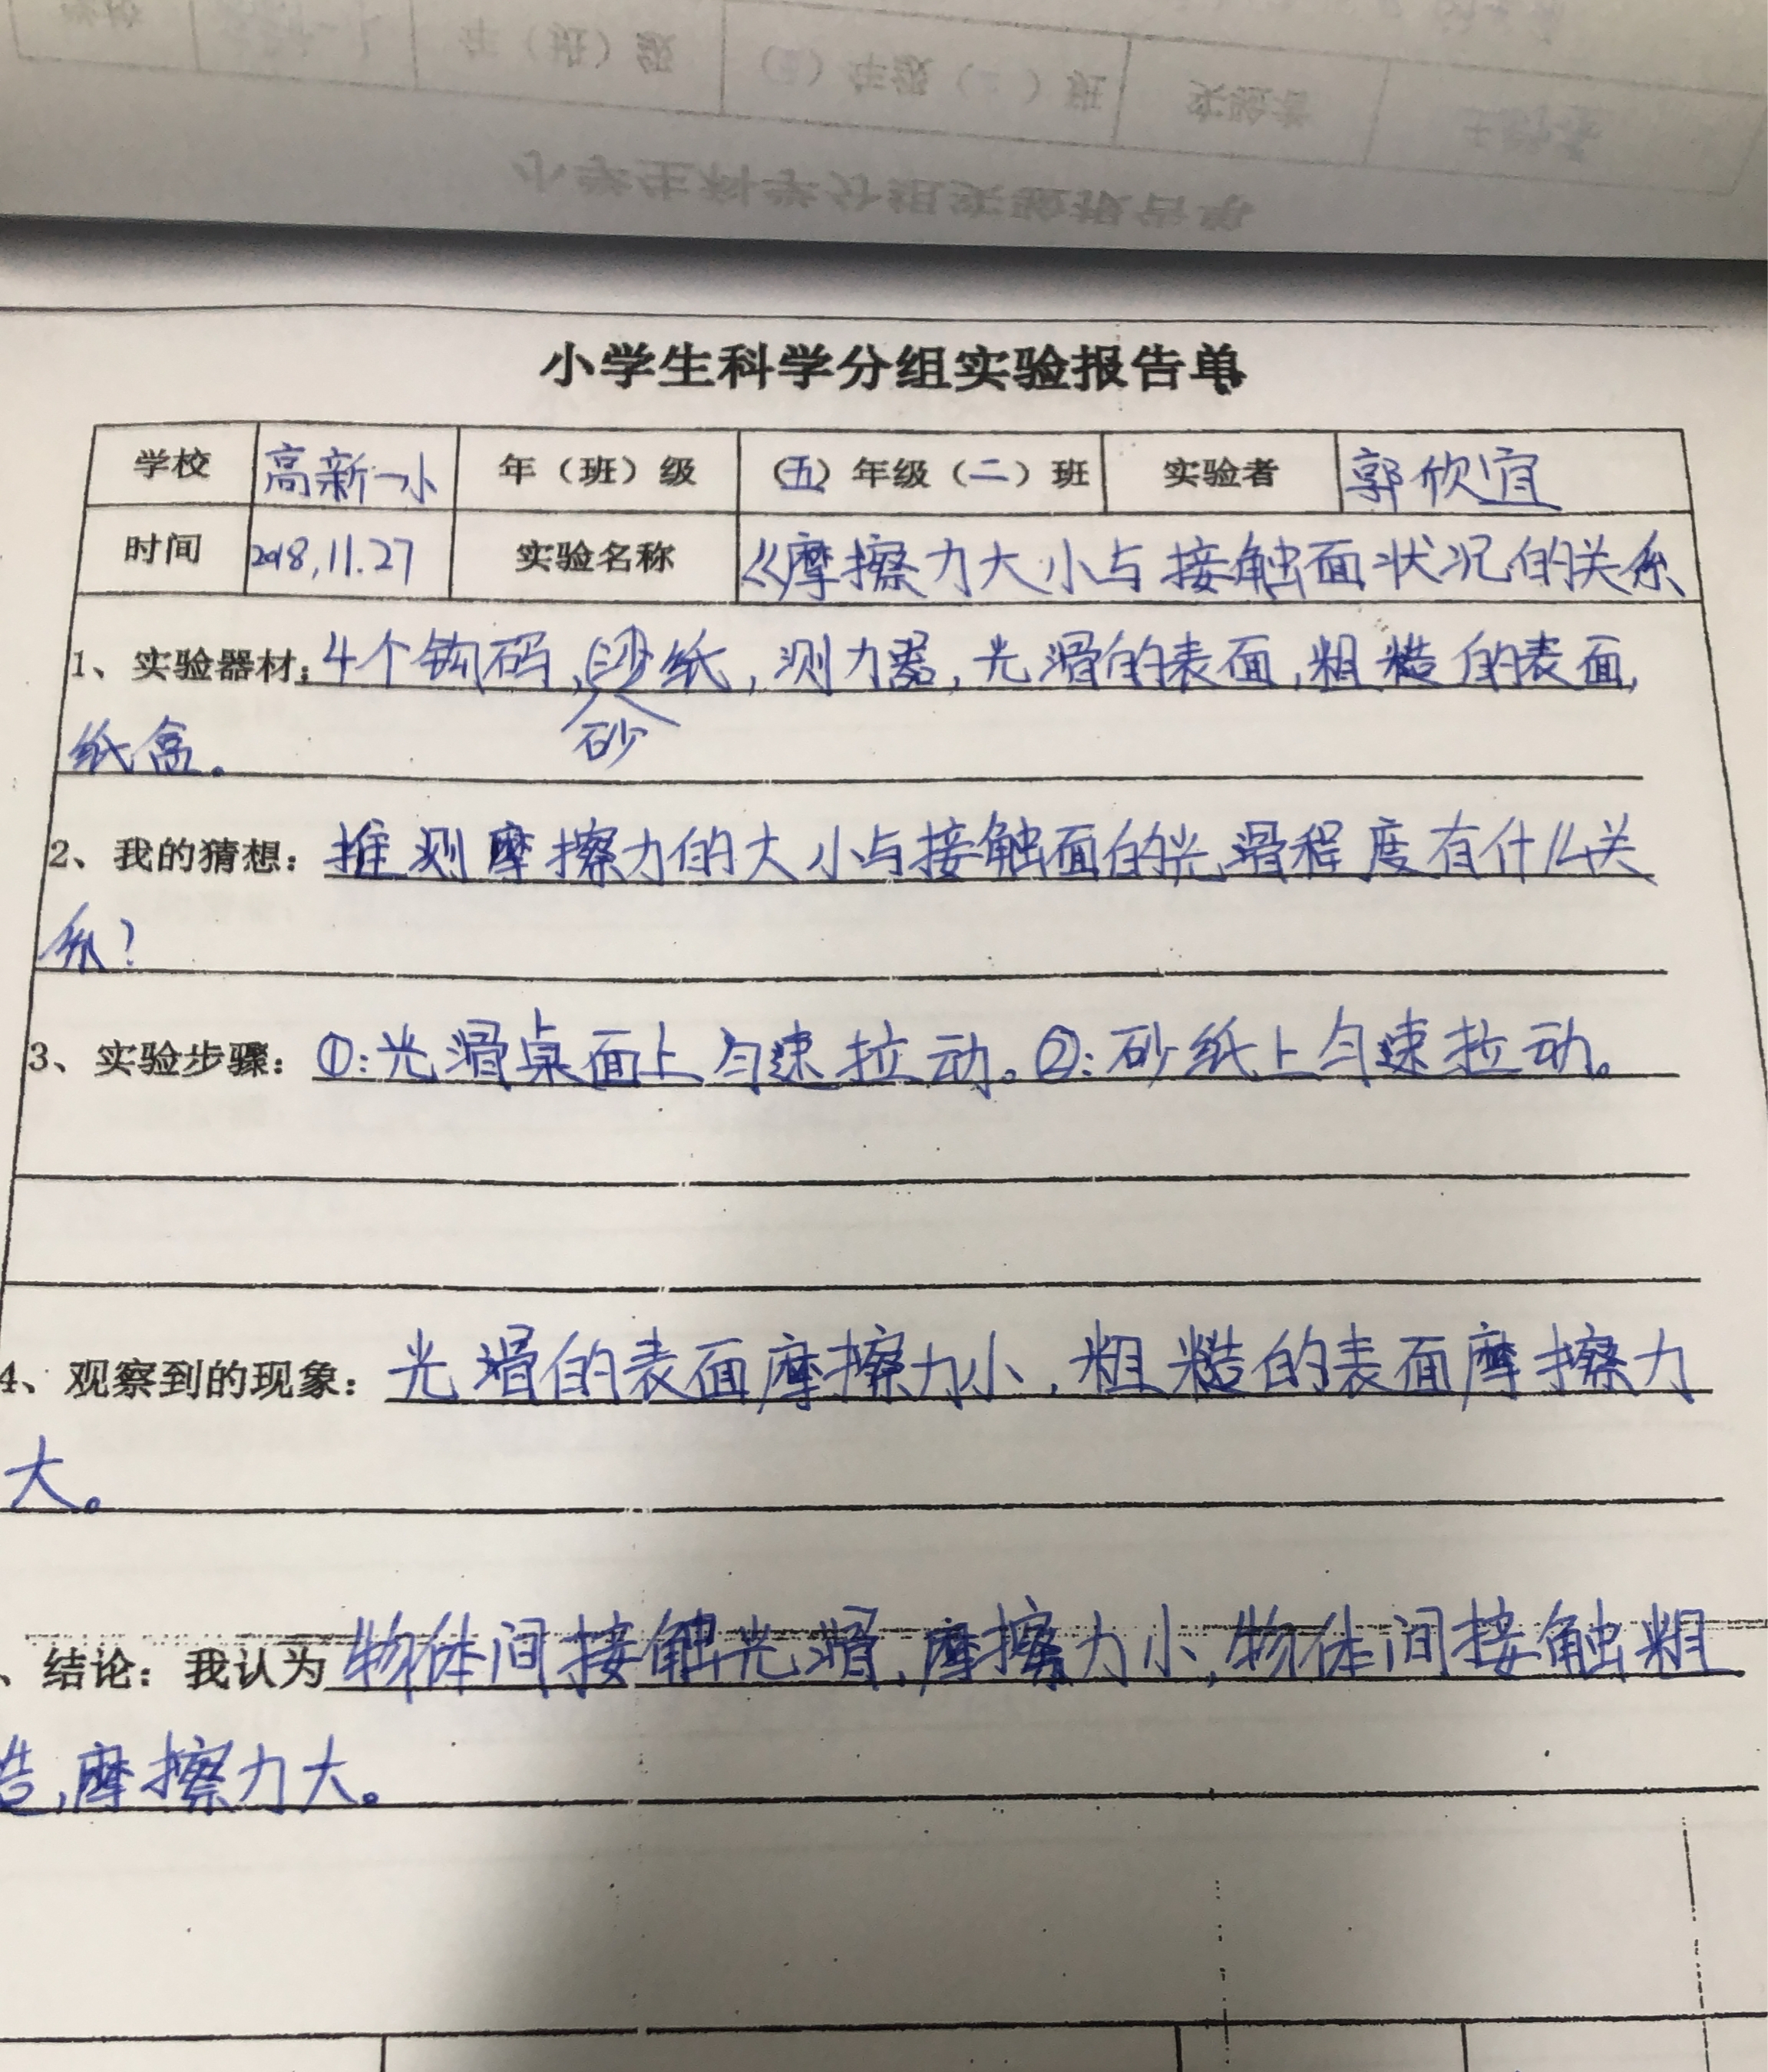 小学生科学分组实验报告单
学校 高新一小 年（班）级 （五）年级（二）班 实验者 郭欣宜
时间 2018.11.27 实验名称 《摩擦力大小与接触面状况的关系
1、实验器材：4个钩码、纸，测力器，光滑的表面，粗糙的表面，
砂
纸盒。
2、我的猜想：推测摩擦力的大小与接触面的光滑程度有什么关
系？
3、实验步骤：①：光滑桌面上匀速拉动。②：砂纸上匀速拉动。
4、观察到的现象：光滑的表面摩擦力小，粗糙的表面摩擦力
大。
、结论：我认为物体间接触光滑，摩擦力小，物体间接触粗
造，摩擦力大。